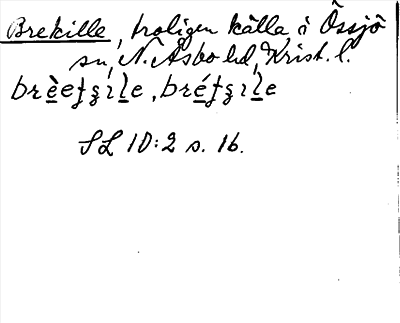 Brekille, troligen källa i Össjö
sn, N. Åsbo hd, Krist. l.
brèeʈʂıl̲e, bréʈʂıl̲e
SL 10:2 s. 16.